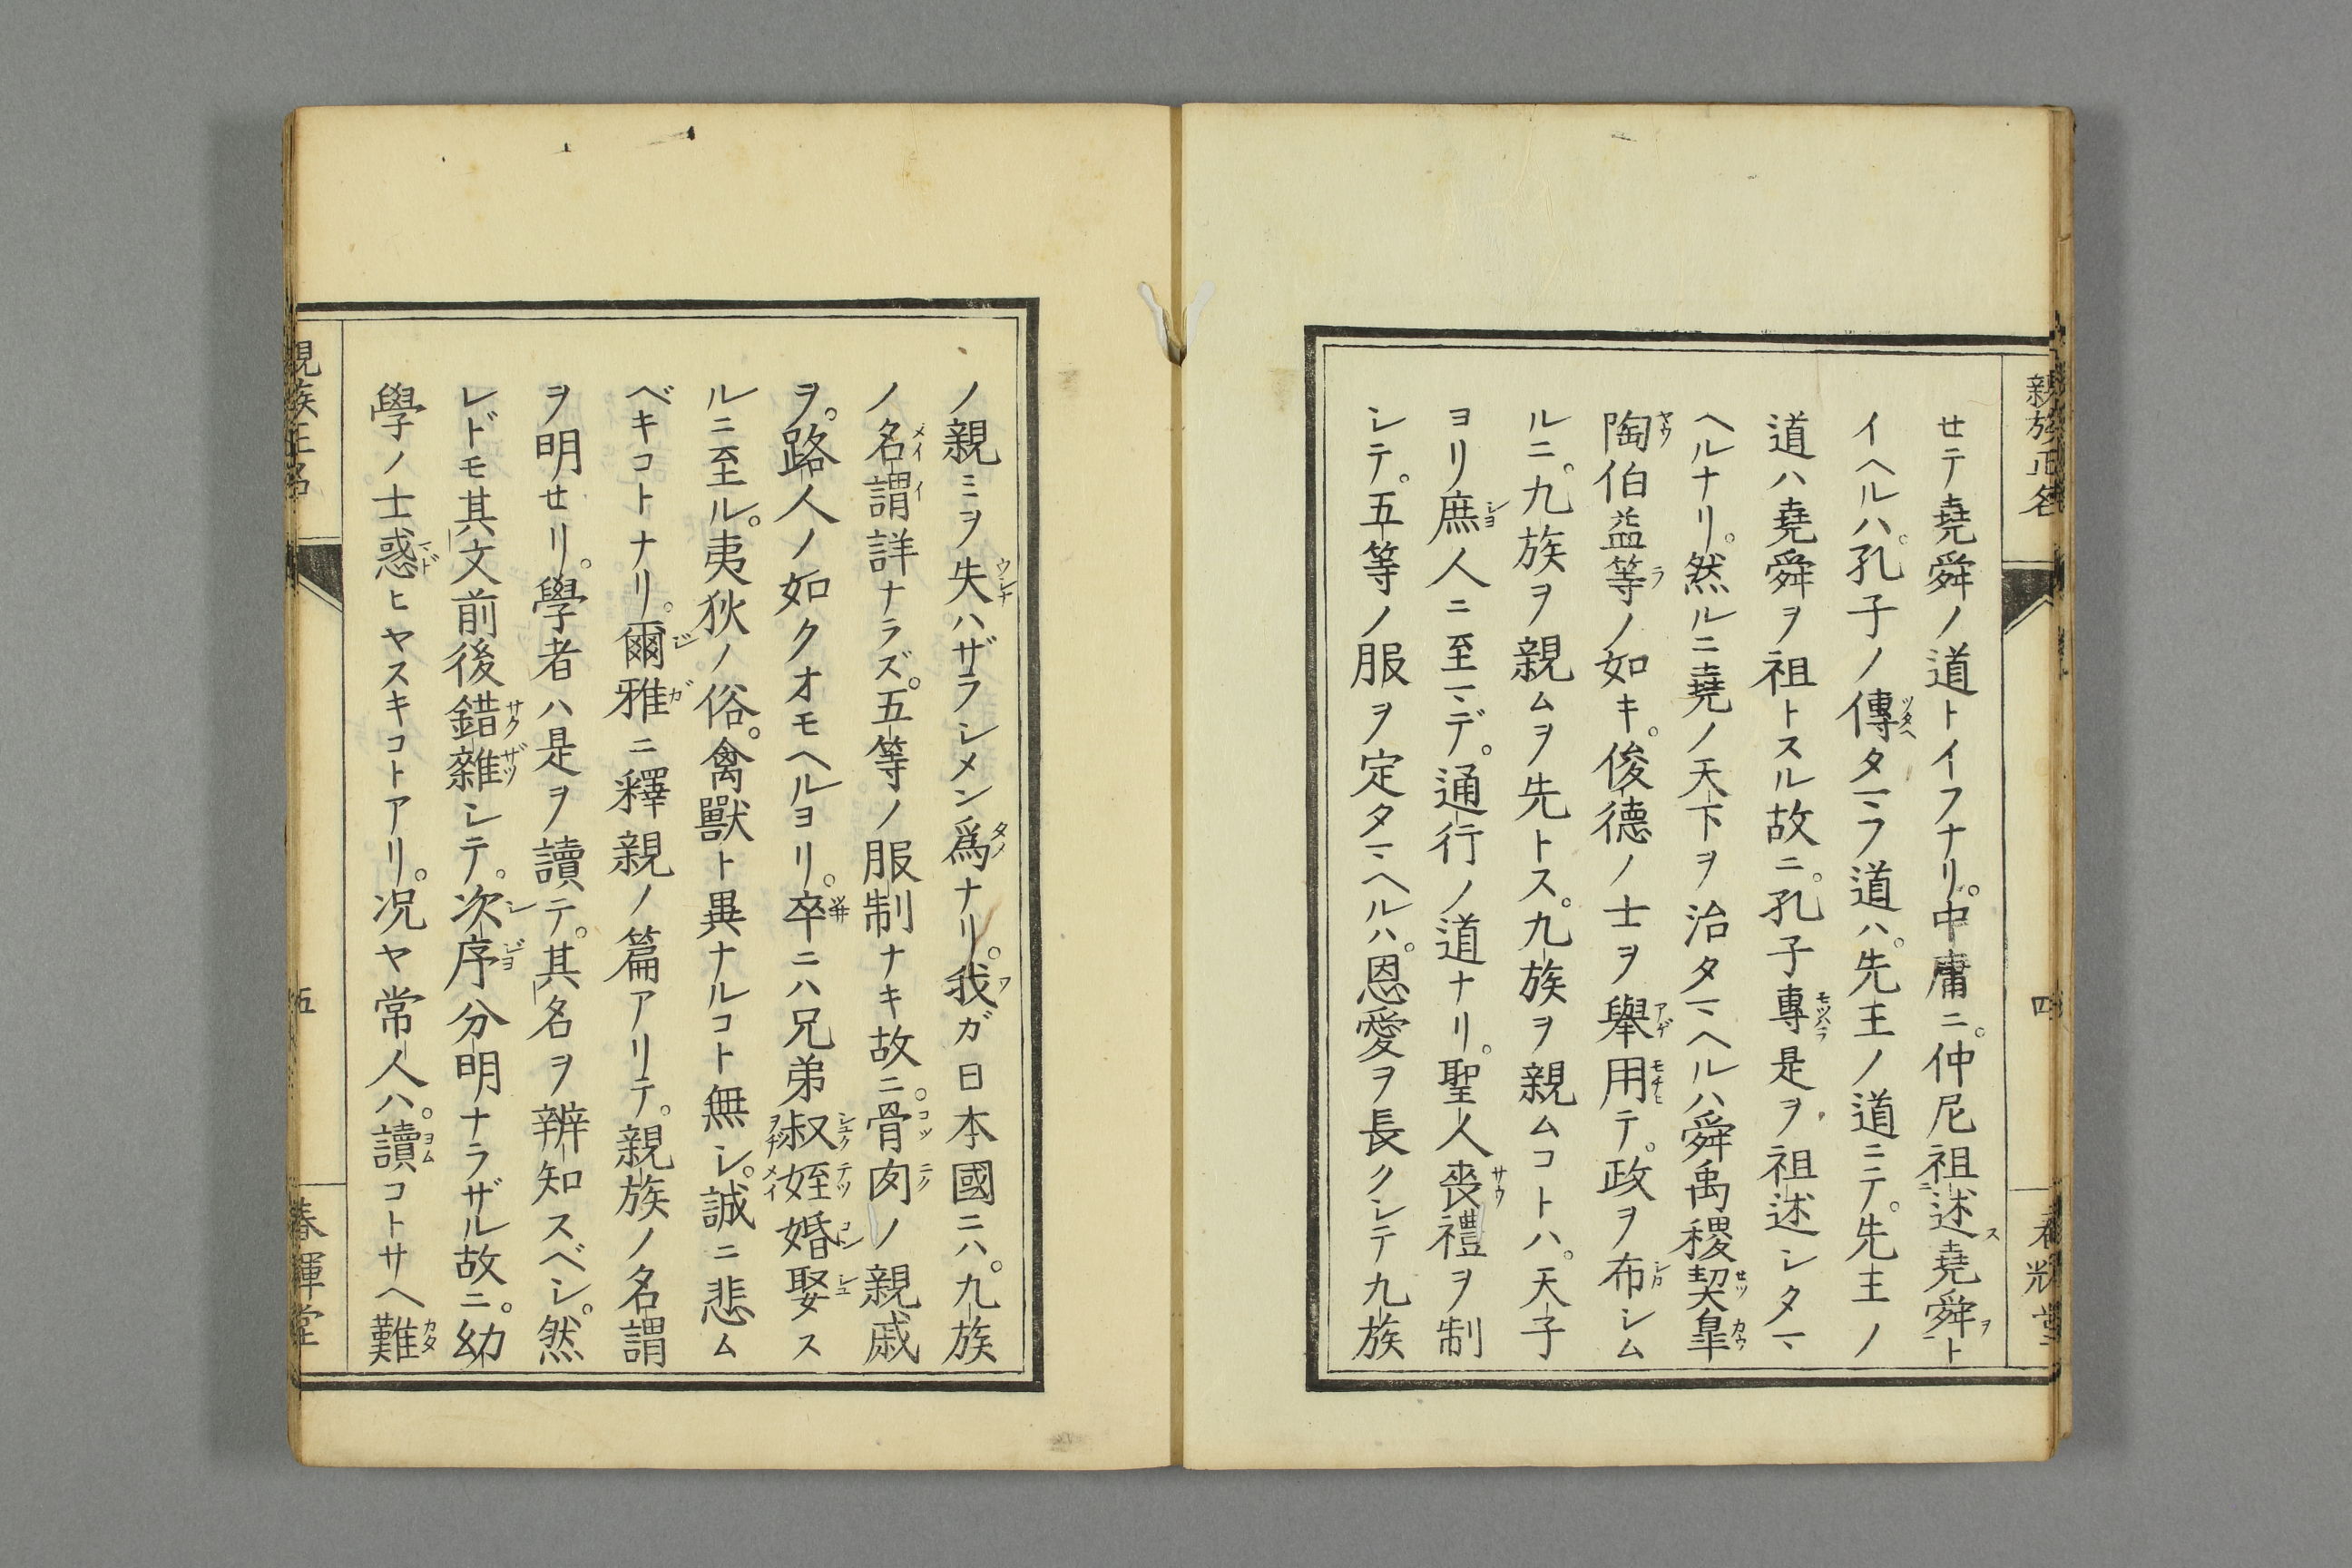 親族正名
四
せテ堯舜ノ道トイフナリ。中庸ニ。仲尼祖述堯舜ト
イヘルハ。孔子ノ傳タマフ道ハ。先王ノ道ニテ。先王ノ
道ハ堯舜ヲ祖トスル故ニ。孔子專是ヲ祖述シタマ
ヘルナリ。然ルニ堯ノ天下ヲ治タマヘルハ舜禹稷契皐
陶伯益等ノ如キ。俊德ノ士ヲ舉用テ。政ヲ布シム
ルニ。九族ヲ親ムヲ先トス。九族ヲ親ムコトハ。天子
ヨリ庶人ニ至マデ。通行ノ道ナリ。聖人喪禮ヲ制
シテ。五等ノ服ヲ定タマヘルハ。恩愛ヲ長クシテ九族
ノ親ミヲ失ハザラシメン爲ナリ。我ガ日本國ニハ。九族
ノ名謂詳ナラズ。五等ノ服制ナキ故ニ。骨肉ノ親戚
ヲ。路人ノ如クオモヘルヨリ。卒ニハ兄弟叔姪婚娶ス
ルニ至ル。夷狄ノ俗。禽獸ト異ナルコト無シ。誠ニ悲ム
ベキコトナリ。爾雅ニ釋親ノ篇アリテ。親族ノ名謂
ヲ明せリ。學者ハ是ヲ讀テ。其名ヲ辨知スベシ。然
レドモ其文前後錯雜シテ。次序分明ナラザル故ニ。幼
學ノ士惑ヒヤスキコトアリ。況ヤ常人ハ。讀コトサヘ難
親族正名
五
春暉堂